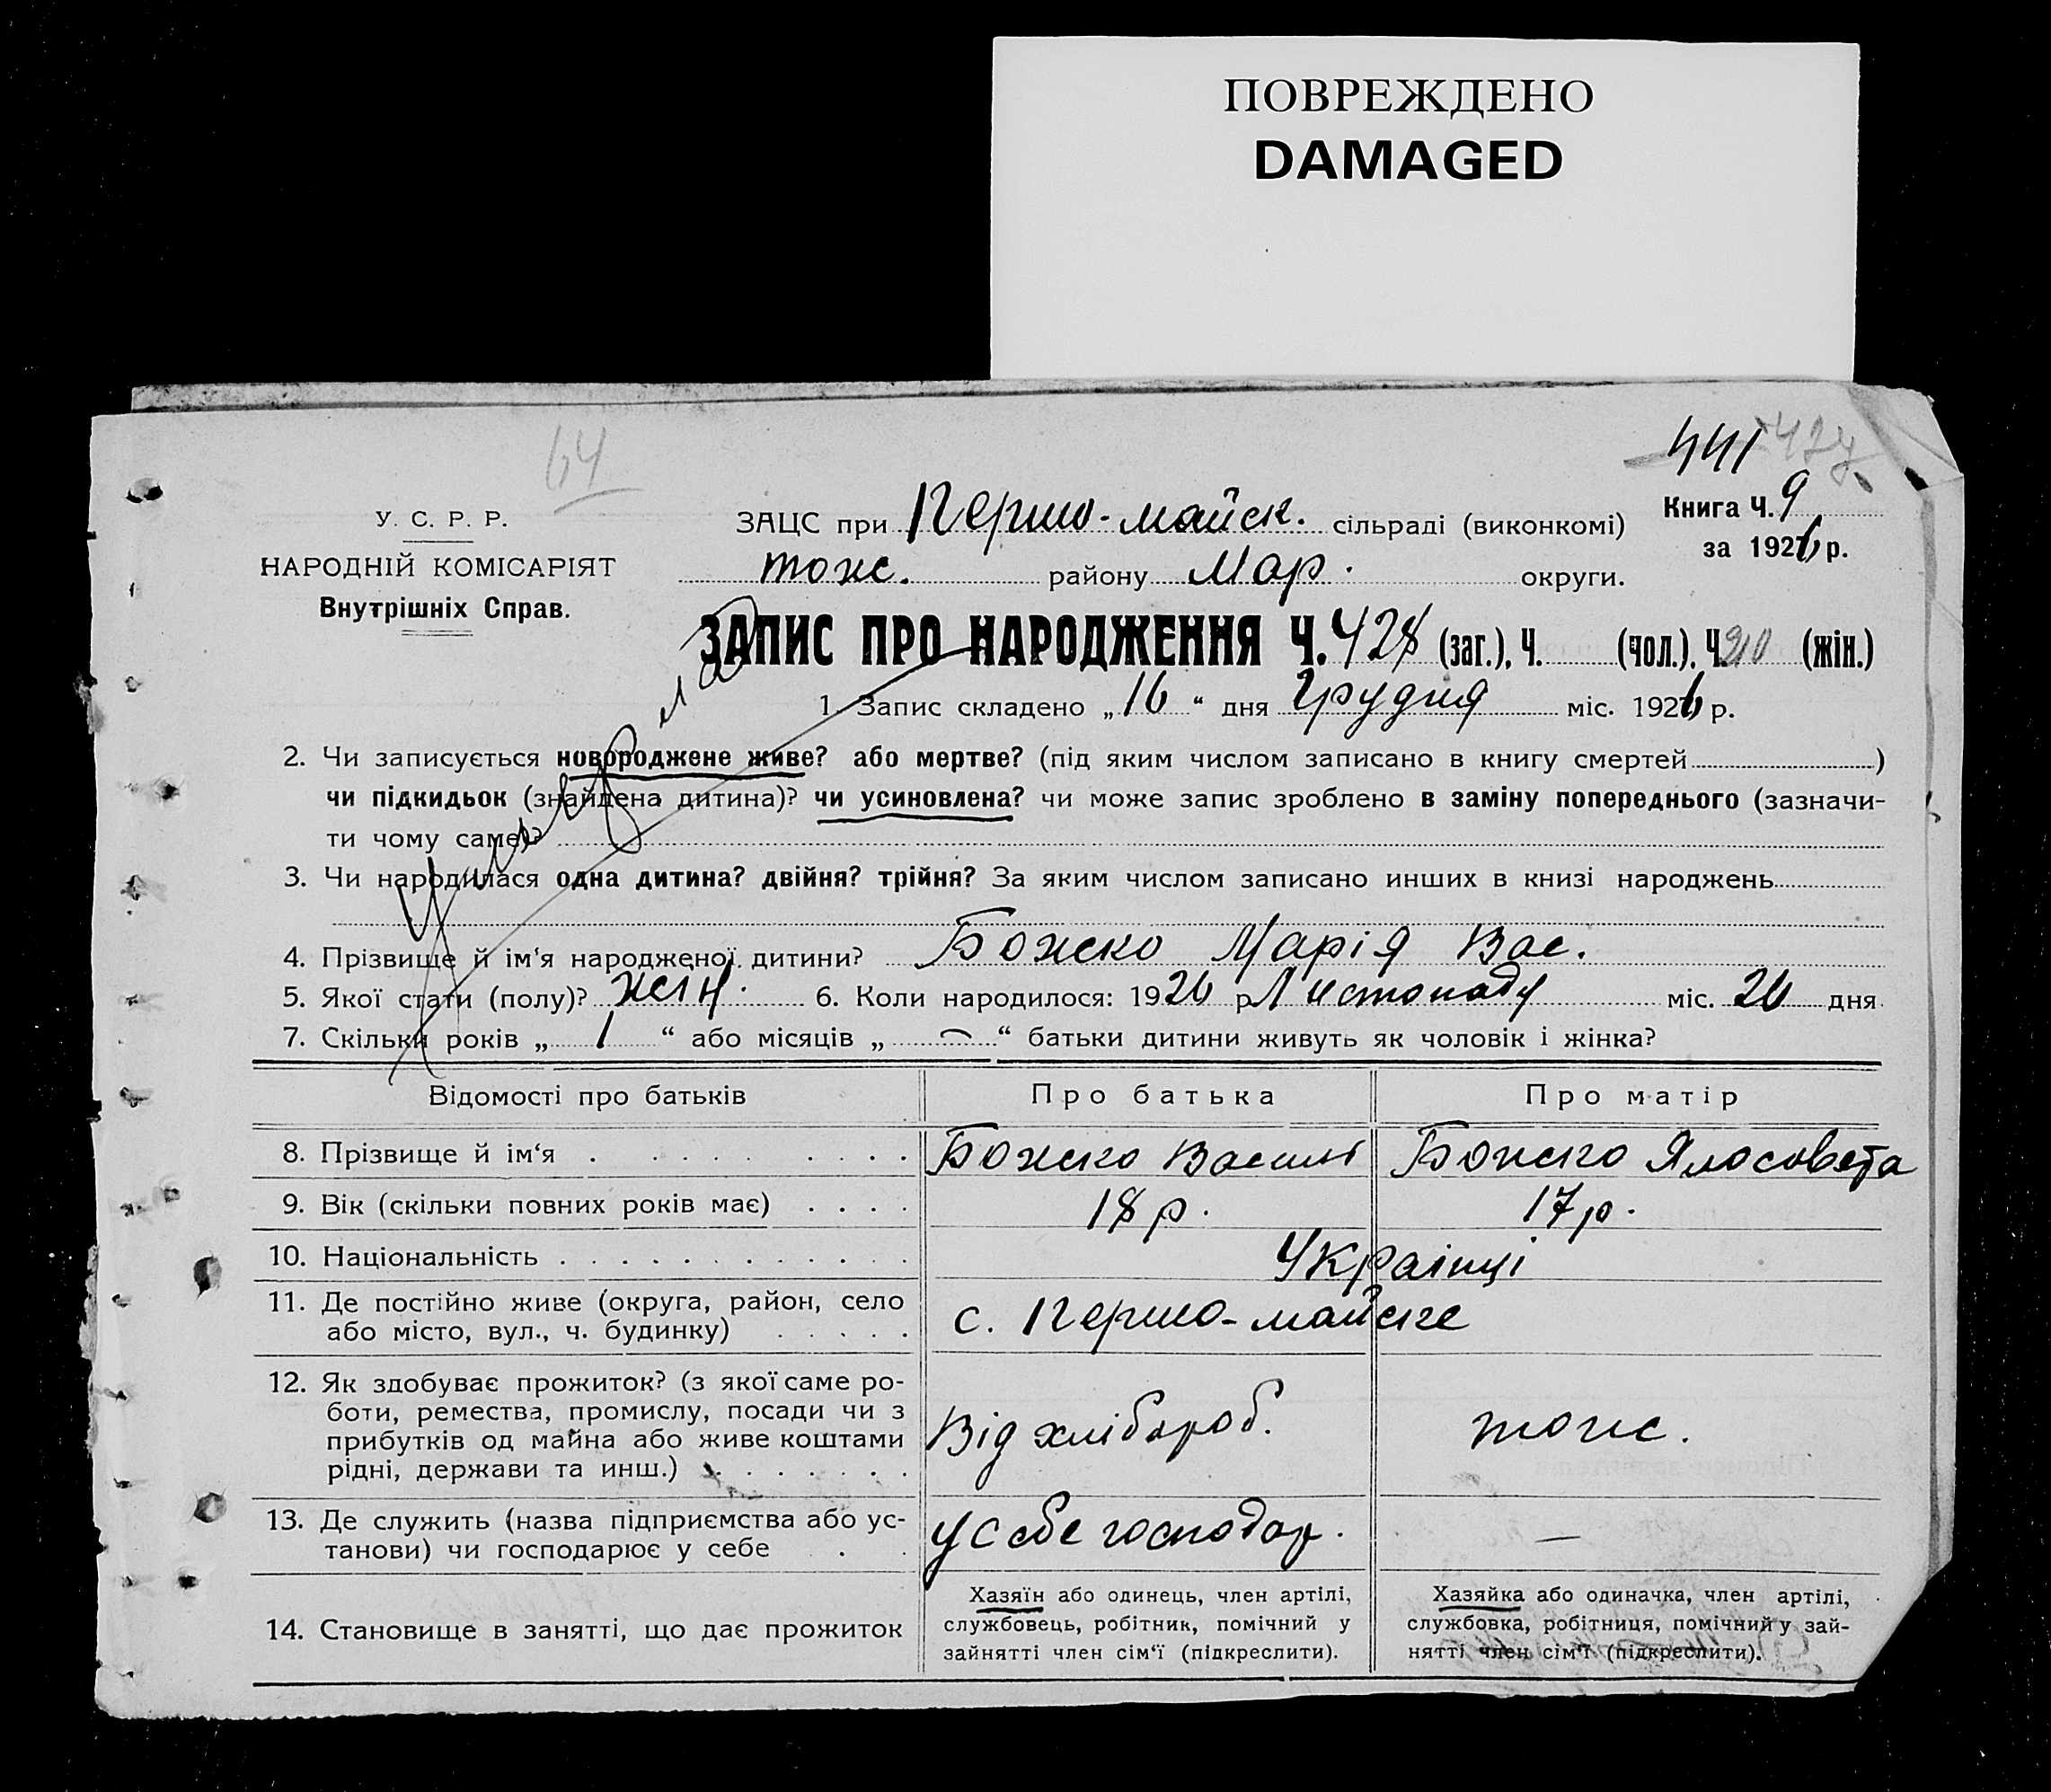 ПОВРЕЖДЕНО
DAMAGED
64
441 427
У. С. Р. Р.
НАРОДНІЙ КОМІСАРІЯТ
Внутрішніх Справ.
ЗАЦС при Першо-майск. сільраді (виконкомі)
Книга Ч. 9
за 1926 р.
тож. району Мар. округи.
ЗАПИС ПРО НАРОДЖЕННЯ Ч. 428 (заг.), Ч. (чол.), Ч. 210 (жін.)
1. Запис складено „16“ дня Грудня міс. 1926 р.
2. Чи записується новороджене живе? або мертве? (під яким числом записано в книгу смертей )
чи підкидьок (знайдена дитина)? чи усиновлена? чи може запис зроблено в заміну попереднього (зазначи-
ти чому саме)?
Умерла
3. Чи народилася одна дитина? двійня? трійня? За яким числом записано инших в книзі народжень
4. Прізвище й ім‘я народженої дитини? Божко Марія Вас.
5. Якої стати (полу)? жін. 6. Коли народилося: 1926 р. Листопаду міс. 26 дня
7. Скільки років „ 1 “ або місяців „ — “ батьки дитини живуть як чоловік і жінка?
Відомості про батьків Про батька Про матір
8. Прізвище й ім‘я Божко Василь Божко Ялосовета
9. Вік (скільки повних років має) 18 р. 17 р.
10. Національність Українці
11. Де постійно живе (округа, район, село
або місто, вул., ч. будинку) с. Першо-майске
12. Як здобуває прожиток? (з якої саме ро-
боти, ремества, промислу, посади чи з
прибутків од майна або живе коштами
рідні, держави та инш.) Від хлібороб. тож.
13. Де служить (назва підприємства або ус-
танови) чи господарює у себе У себе господар. —
14. Становище в занятті, що дає прожиток
Хазяїн або одинець, член артілі,
службовець, робітник, помічний у
зайнятті член сім‘ї (підкреслити).
Хазяйка або одиначка, член артілі,
службовка, робітниця, помічний у зай-
нятті член сім‘ї (підкреслити).